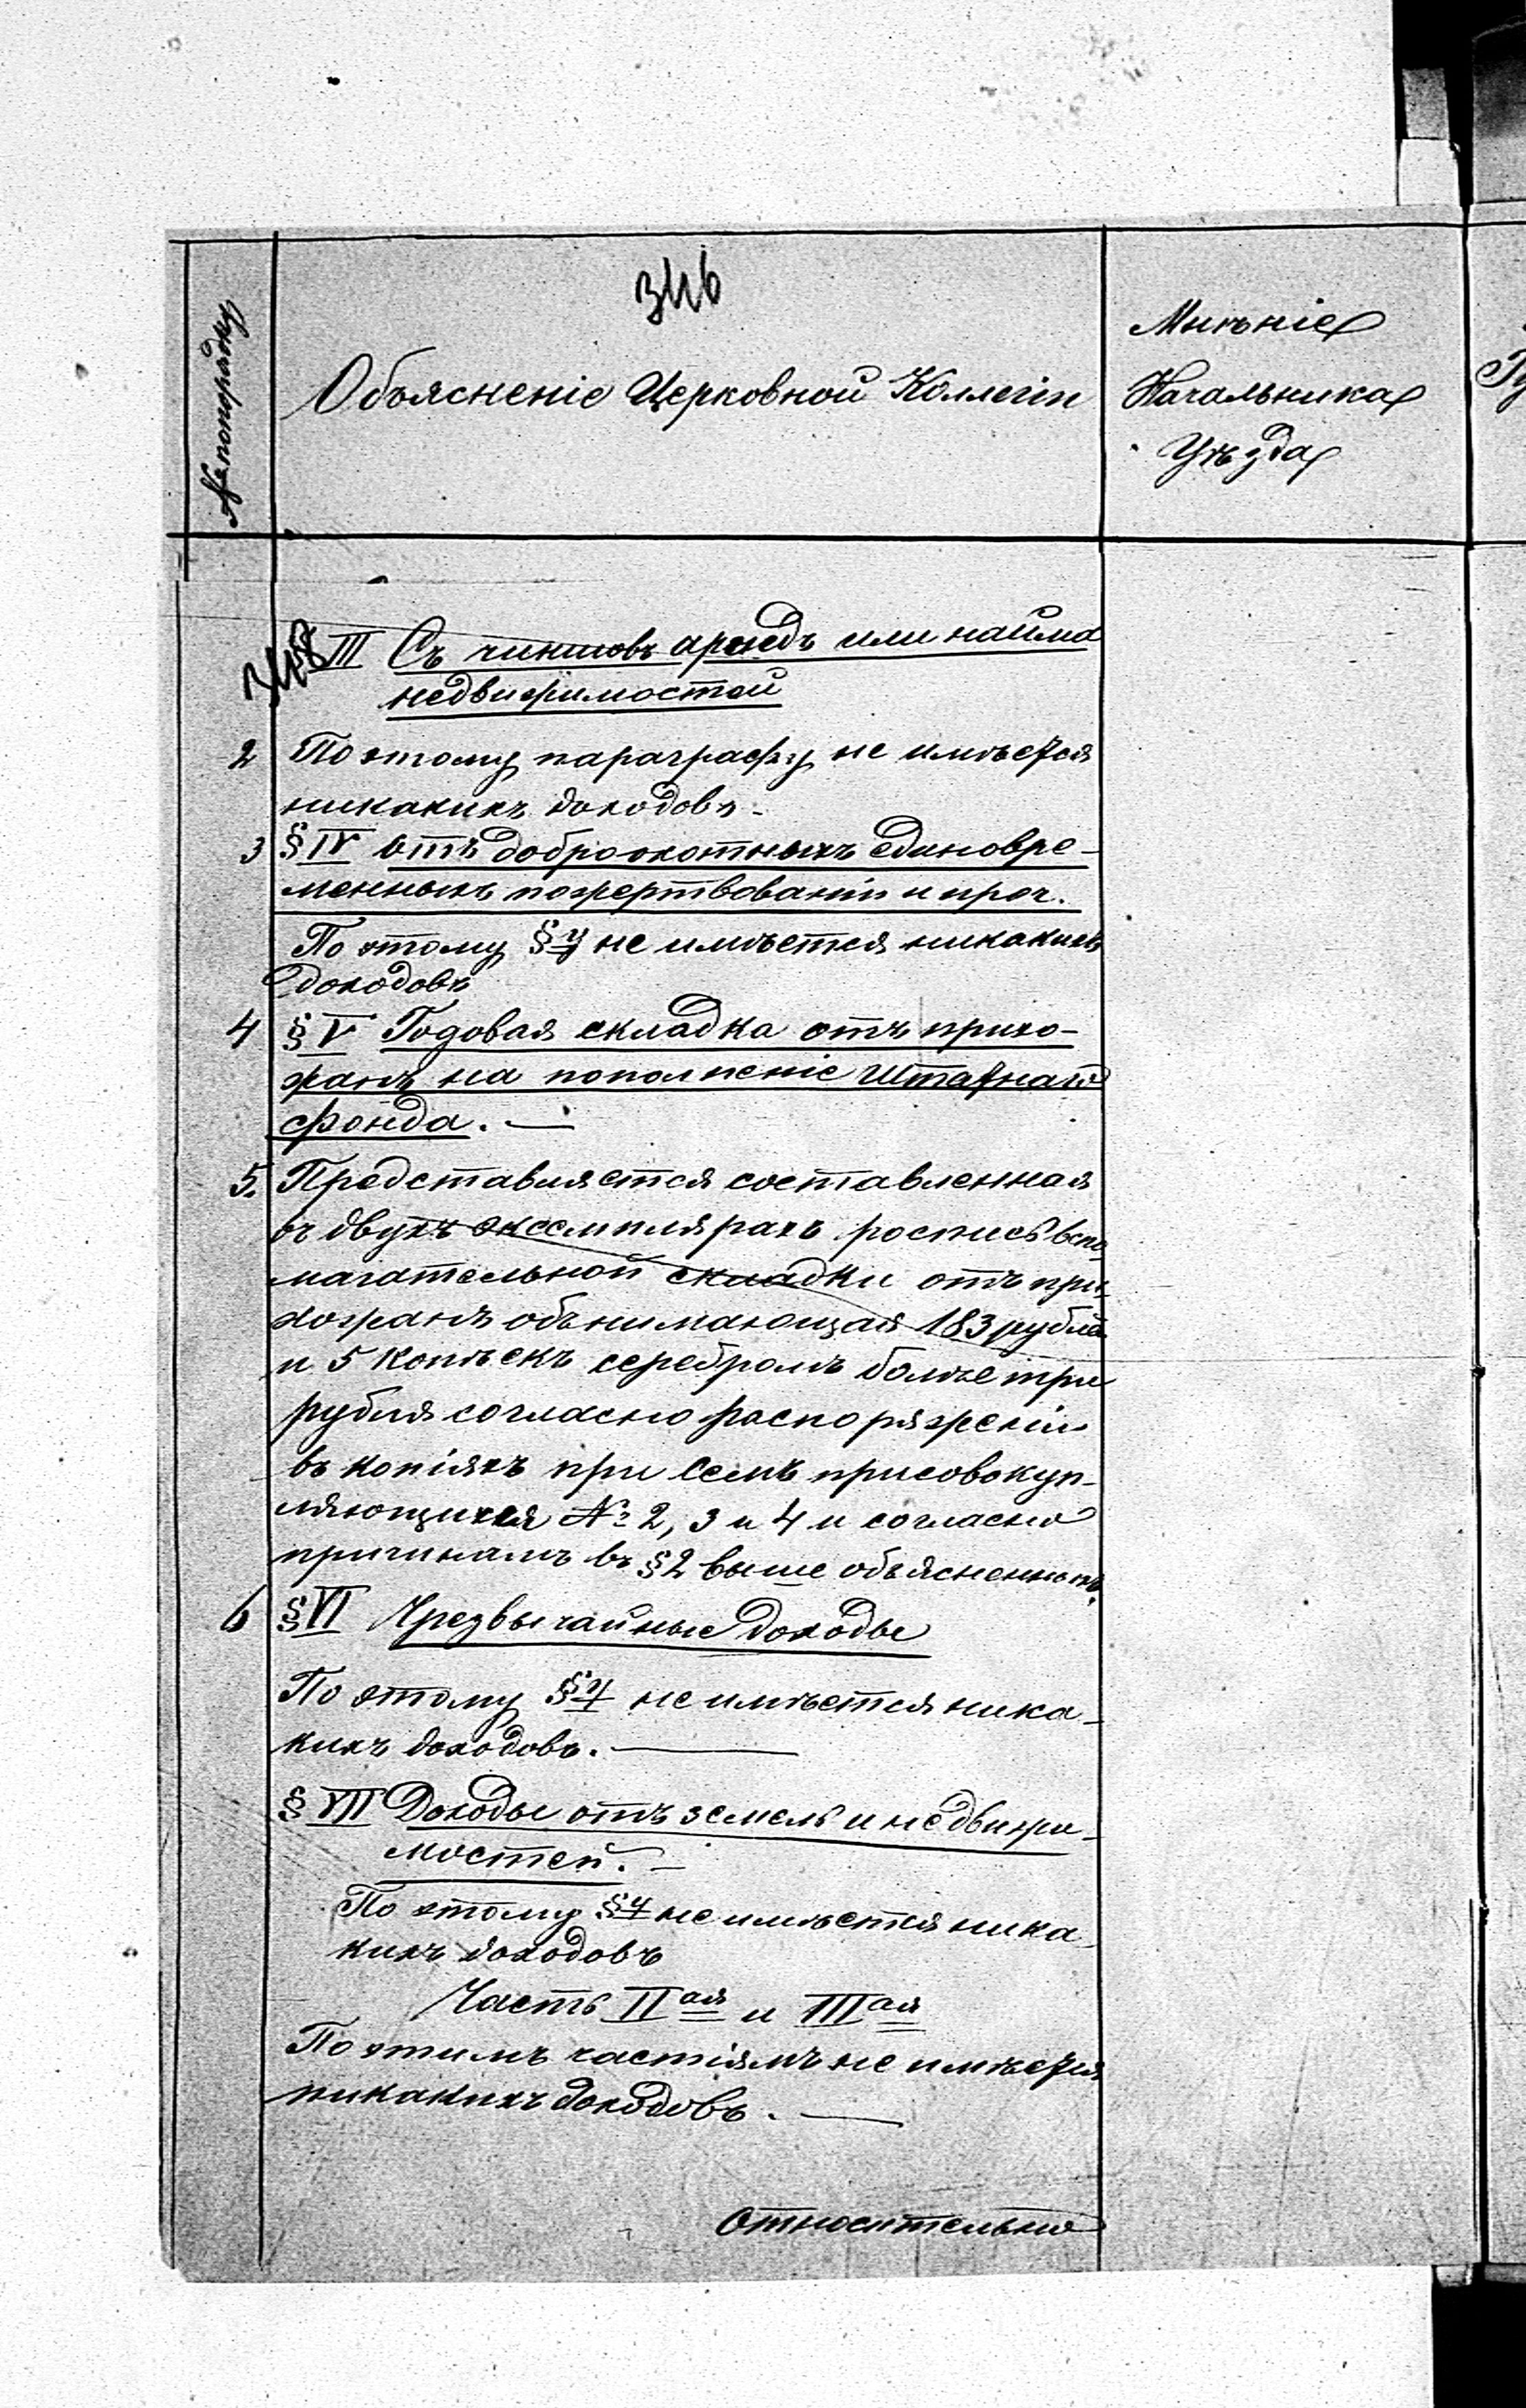 346
№ по порядку
Объясненіе Церковной Коллегіи
Мнѣніе
Начальника
Уѣзда
348
§ III Съ чиншовъ арендъ или найма
недвижимостей
2 По этому параграфу не имѣется
никакихъ доходовъ.
3 § IV отъ доброохотныхъ единовре-
менныхъ пожертвованій и проч.
По этому §у не имѣется никакихъ
доходовъ
4 § V Годовая складка отъ прихо-
жанъ на пополненіе Штатнаго
фонда. —
5. Представляется составленная
въ двухъ экземплярахъ роспись вспо
магательной складки отъ при-
хожанъ обьнимающая 183 рублей
и 5 копѣекъ серебромъ болѣе три
рубля согласно распоряженій
въ копіяхъ при семъ присовокуп-
ляющихся № 2, 3 и 4 и согласно
причинамъ въ § 2 выше объясненнымъ.
6 § VI Чрезвычайные доходы
По этому §у не имѣется ника-
кихъ доходовъ. —
§ VII Доходы отъ земель и недвижи-
мостей. —
По этому §у не имѣется ника
кихъ доходовъ
Часть IIая и IIIая
По этимъ частіямъ не имѣется
никакихъ доходовъ. —
Относительно